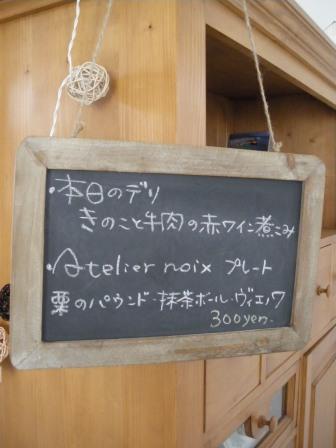 ・本日のデリ
きのこと牛肉の赤ワイン煮こみ
・Atelier noix プレート
栗のパウンド・抹茶ボール・ヴィエノワ
300yen-